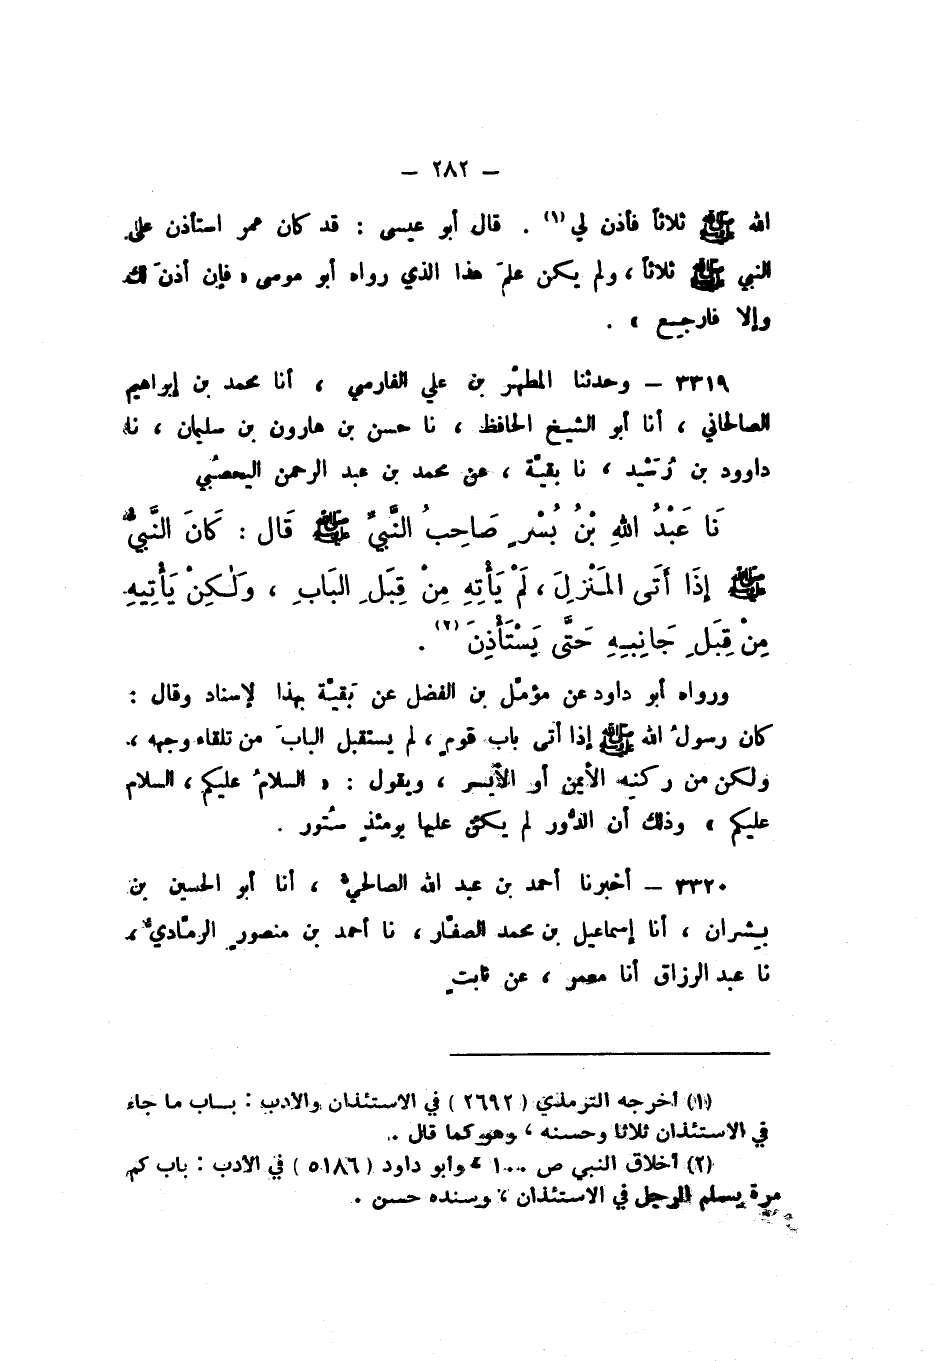 – ٢٨٢ –
الله ﷺ ثلاثاً فأذن لي (١) . قال أبو عيسى : قد كان عمر استأذن على
النبي ﷺ ثلاثاً ، ولم يكن علمَ هذا الذي رواه أبو موسى « فإن أذنَ لك
وإلا فارجع » .
٣٣١٩ – وحدثنا المطهّر بن علي الفارسي ، أنا محمد بن إبراهيم
الصالحاني ، أنا أبو الشيخ الحافظ ، نا حسن بن هارون بن سليمان ، نا
داوود بن رُشَيد ، نا بقيّة ، عن محمد بن عبد الرحمن اليحصُبي
نَا عَبْدُ اللهِ بْنُ بُسْرٍ صَاحِبُ النَّبِيِّ ﷺ قَال : كَانَ النَّبِيُّ
ﷺ إِذَا أَتَى المَنْزِلَ ، لَمْ يَأْتِهِ مِنْ قِبَلِ البَابِ ، وَلٰكِنْ يَأْتِيهِ
مِنْ قِبَلِ جَانِبِهِ حَتَّى يَسْتَأْذِنَ (٢) .
ورواه أبو داود عن مؤمّل بن الفضل عن بَقيّة بهذا لإسناد وقال :
كان رسولُ الله ﷺ إذا أتى باب قومٍ ، لم يستقبل البابَ من تلقاء وجهه ،
ولكن من ركنه الأيمن أو الأيسر ، ويقول : « السلامُ عليكم ، السلام
عليكم » وذلك أن الدُّور لم يكن عليها يومئذٍ سُتور .
٣٣٢٠ – أخبرنا أحمد بن عبد الله الصالحيُّ ، أنا أبو الحسين بن
بشران ، أنا إسماعيل بن محمد الصفّار ، نا أحمد بن منصورٍ الرمّاديُّ ،
نا عبد الرزاق أنا معمر ، عن ثابتٍ
(١) أخرجه الترمذي (٢٦٩٢) في الاستئذان والأدب : باب ما جاء
في الاستئذان ثلاثا وحسنه ، وهو كما قال .
(٢) أخلاق النبي ص ١٠٠ ، وأبو داود (٥١٨٦) في الأدب : باب كم
مرة يسلم الرجل في الاستئذان ، وسنده حسن .